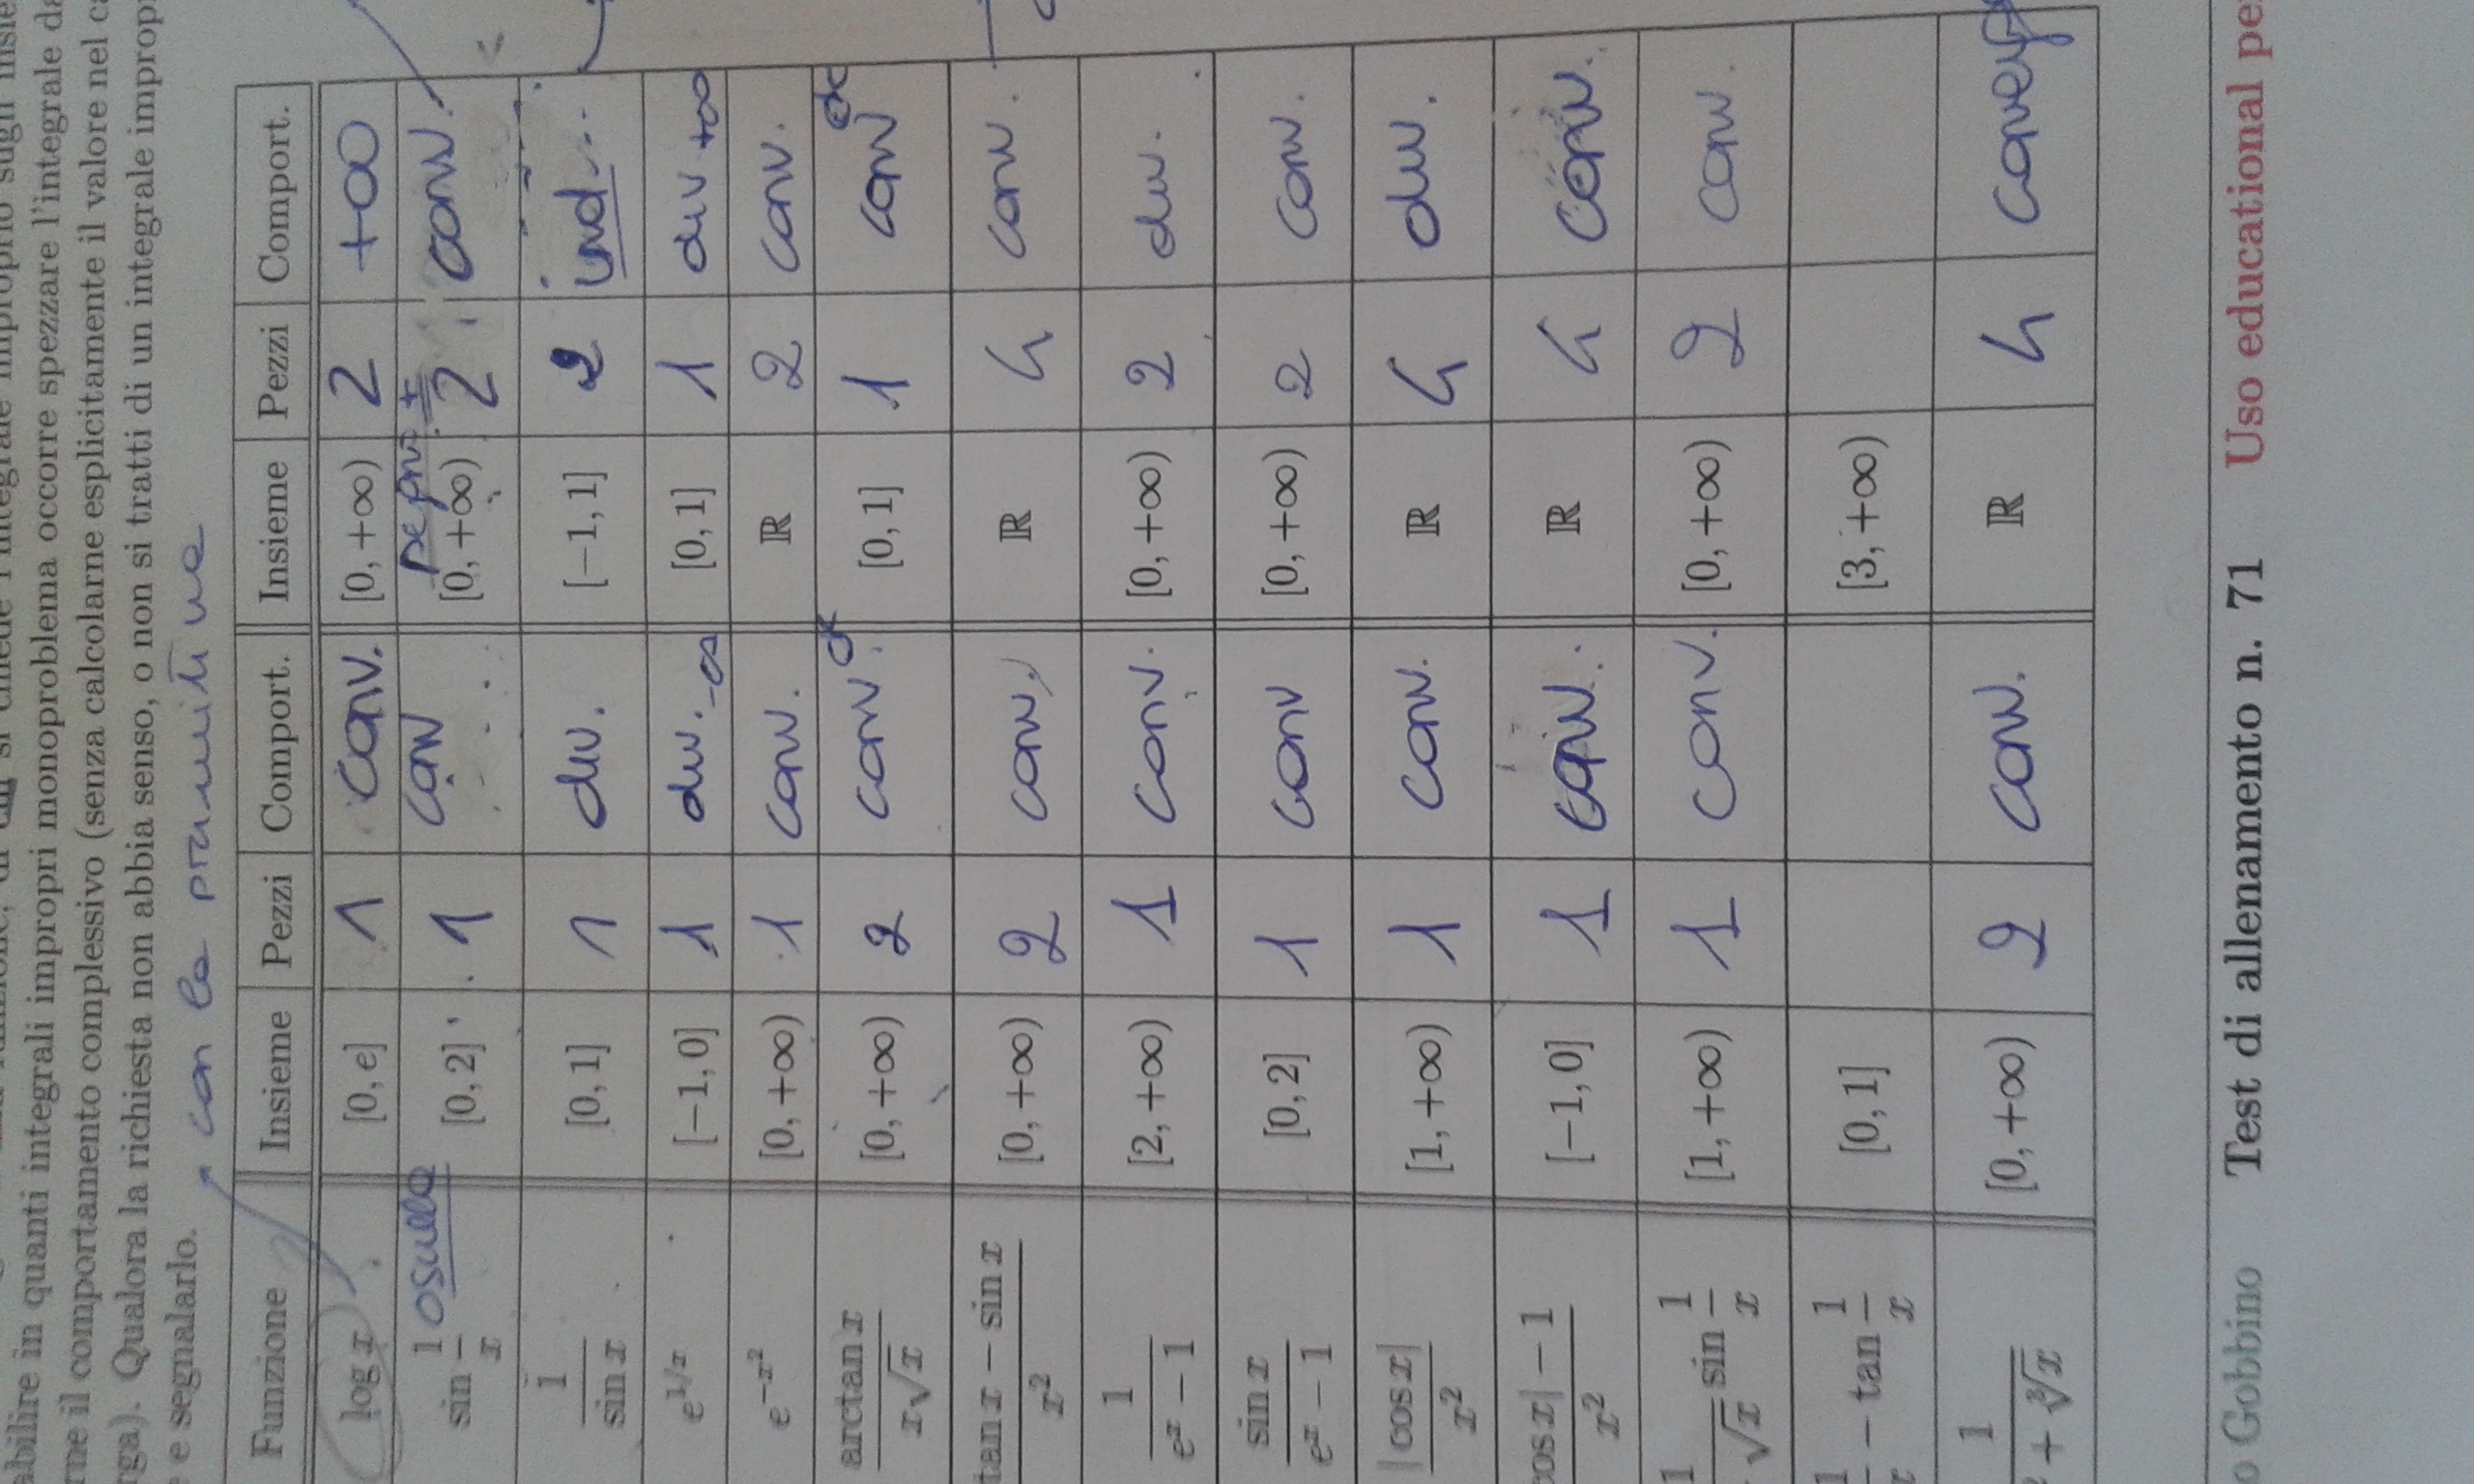 si chiede l'integrale improprio sugli
in quanti integrali impropri monoproblema occorre spezzare l'integrale
il comportamento complessivo (senza calcolarne esplicitamente il valore nel
Qualora la richiesta non abbia senso, o non si tratti di un integrale
e segnalarlo.
con le primitive
Funzione Insieme Pezzi Comport. Insieme Pezzi Comport.
log x [0, e] 1 conv. [0, +∞) 2 +∞
sin 1/x oscilla [0, 2] 1 conv [0, +∞) 2 conv.
1/sin x [0, 1] 1 div. [−1, 1] 2 ind.
e^{1/x} [−1, 0] 1 div. -∞ [0, 1] 1 div +∞
e^{−x²} [0, +∞) 1 conv. ℝ 2 conv.
arctan x / x√x [0, +∞) 2 conv. ok [0, 1] 1 conv ok
tan x − sin x / x² [0, +∞) 2 conv. ℝ 4 conv.
1/(e^x − 1) [2, +∞) 1 conv. [0, +∞) 2 div.
sin x/(e^x − 1) [0, 2] 1 conv [0, +∞) 2 conv.
|cos x|/x² [1, +∞) 1 conv. ℝ 4 div.
cos x| − 1 / x² [−1, 0] 1 conv. ℝ 4 conv.
1/√x sin 1/x [1, +∞) 1 conv. [0, +∞) 2 conv.
1/x − tan 1/x [0, 1] [3, +∞)
1 / + ∛x [0, +∞) 2 conv. ℝ 4
Gobbino Test di allenamento n. 71 Uso educational